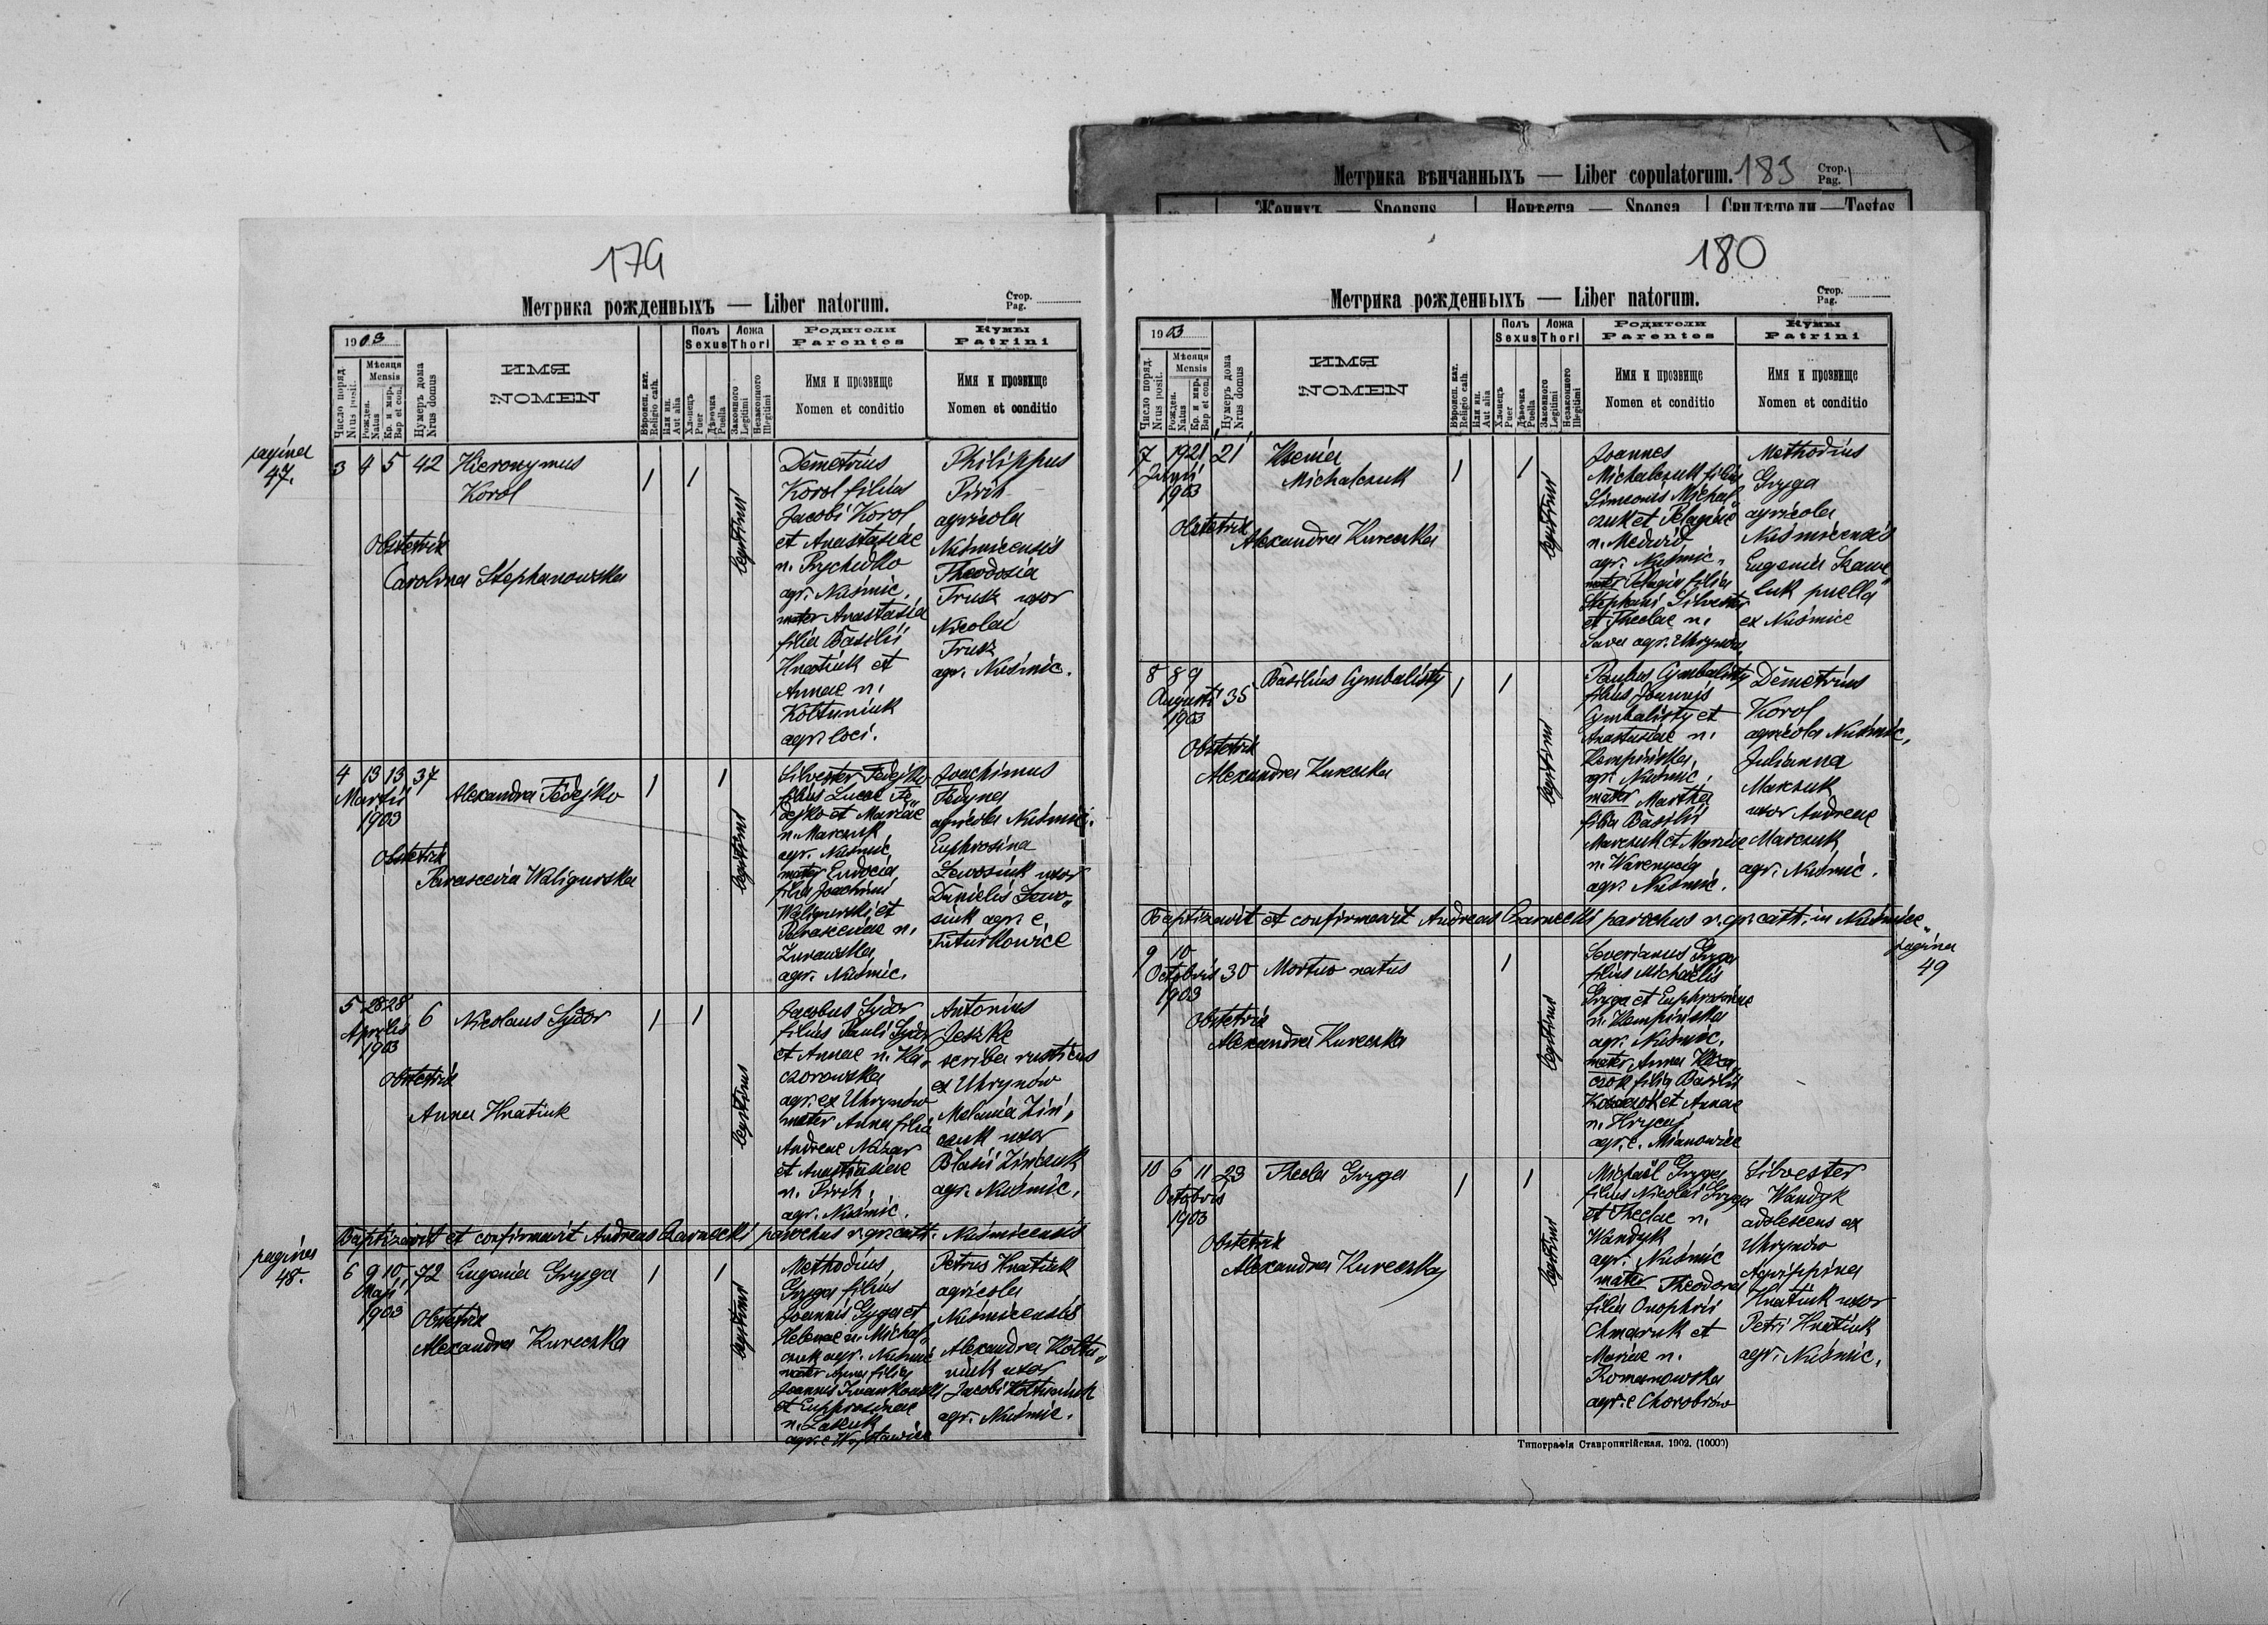 Метрика вѣнчанныхъ — Liber copulatorum. 183 Стор. Pag. 1
Женихъ — Sponsus Невѣста — Sponsa Свидѣтели — Testes
179
Метрика рожденныхъ — Liber natorum. Стор. Pag.
1903
Число поряд. Nrus posit.
Мѣсяця Mensis
Рожден. Natus
Кр. и мир. Bap et con.
Нумеръ дома Nrus domus
ИМЯ
NOMEN
Вѣроисп. кат. Religio cath.
Или ин. Aut alia
Полъ Sexus
Хлопецъ Puer
Дѣвочка Puella
Ложа Thori
Законного Legitimi
Незаконного Illegitimi
Родители Parentes
Имя и прозвище
Nomen et conditio
Кумы Patrini
Имя и прозвище
Nomen et conditio
pagina
47.
3 4 5 42 Hieronymus
Korol
1 1
legitimi
Obstetrix
Carolina Stephanowska
Demetrius
Korol filius
Jacobi Korol
et Anastasiae
n. Prychidko
agr. Nuśmic.
mater Anastasia
filia Basilii
Hnatiuk et
Annae n.
Kołtuniuk
agr. loci.
Philippus
Pirih
agricola
Nuśmicensis
Theodosia
Trusz uxor
Nicolai
Trusz
agr. Nuśmic.
4 13 13 37
Martii
1903
Alexandra Fedejko
1 1
legitimi
Obstetrix
Parascevia Waligurska
Silvester Fedejko
filius Lucae Fe„
dejko et Mariae
n. Marczuk
agr. Nuśmic.
mater Eudocia
filia Joachimi
Waligurski et
Parasceviae n.
Żurawska
agr. Nuśmic.
Joachimus
Fedyna
agricola Nuśmic.
Euphrosina
Lewosiuk uxor
Danielis Lewo„
siuk agr. e
Tuturkowice
5 28 28 6
Aprilis
1903
Nicolaus Sydor
1 1
legitimi
Obstetrix
Anna Hnatiuk
Jacobus Sydor
filius Pauli Sydor
et Annae n. Ka„
czorowska
agr. ex Uhrynów
mater Anna filia
Andreae Nazar
et Anastasiae
n. Pirih
agr. Nuśmic.
Antonius
Jeszke
scriba rusticus
ex Uhrynów
Melania Zin„
czuk uxor
Blasii Zinczuk
agr. Nuśmic.
Baptizavit et confirmavit Andreas Czarnecki parochus r. gr. cath. Nuśmicensis
pagina
48.
6 9 10 72
Maji
1903
Eugenia Gryga
1 1
legitimi
Obstetrix
Alexandra Kureczka
Methodius
Gryga filius
Joannis Gryga et
Helenae n. Michal„
czuk agr. Nuśmic
mater Anna filia
Joannis Iwankowski
et Euphrosinae
n. Łaszuk
agr. e Wojsławice
Petrus Hnatiuk
agricola
Nuśmicensis
Alexandra Kołtu„
niuk uxor
Jacobi Kołtuniuk
agr. Nuśmic.
180
Метрика рожденныхъ — Liber natorum. Стор. Pag.
1903
Число поряд. Nrus posit.
Мѣсяця Mensis
Рожден. Natus
Кр. и мир. Bap et con.
Нумеръ дома Nrus domus
ИМЯ
NOMEN
Вѣроисп. кат. Religio cath.
Или ин. Aut alia
Полъ Sexus
Хлопецъ Puer
Дѣвочка Puella
Ложа Thori
Законного Legitimi
Незаконного Illegitimi
Родители Parentes
Имя и прозвище
Nomen et conditio
Кумы Patrini
Имя и прозвище
Nomen et conditio
7 19 21 21
Junii
1903
Xsenia
Michalczuk
1 1
legitimi
Obstetrix
Alexandra Kureczka
Joannes
Michalczuk filius
Simeonis Michal„
czuk et Pelagiae
n. Medwid
agr. Nuśmic.
mater Pelagia filia
Stephani Silvester
et Theclae n.
Sawa agr. Uhrynów
Methodius
Gryga
agricola
Nuśmicensis
Eugenia Szawe„
luk puella
ex Nuśmice
8 8 9 35
Augusti
1903
Basilius Cymbalisty
1 1
legitimi
Obstetrix
Alexandra Kureczka
Paulus Cymbalisty
filius Joannis
Cymbalisty et
Anastasiae n.
Kempińska
agr. Nuśmic.
mater Martha
filia Basilii
Marczuk et Mariae
n. Warenycia
agr. Nuśmic.
Demetrius
Korol
agricola Nuśmic.
Julianna
Marczuk
uxor Andreae
Marczuk
agr. Nuśmic.
Baptizavit et confirmavit Andreas Czarnecki parochus r. gr. cath. in Nuśmice„
pagina
49
9 10 30
Octobris
1903
Mortuo natus
1
legitimi
Obstetrix
Alexandra Kureczka
Severianus Gryga
filius Michaelis
Gryga et Euphrosinae
n. Kempińska
agr. Nuśmic.
mater Anna Koza„
czok filia Basilii
Kozaczok et Annae
n. Hrycaj
agr. e. Mianowice
10 6 11 23
Octobris
1903
Thecla Gryga
1 1
legitimi
Obstetrix
Alexandra Kureczka
Michaël Gryga
filius Nicolai Gryga
et Theclae n.
Wandyk
agr. Nuśmic
mater Theodora
filia Onophrii
Chmaruk et
Mariae n.
Romanowska
agr. e Chorobrów
Silvester
Wandyk
adolescens ex
Uhrynów
Agrippina
Hnatiuk uxor
Petri Hnatiuk
agr. Nuśmic.
Типографія Ставропигійская. 1902. (10000)